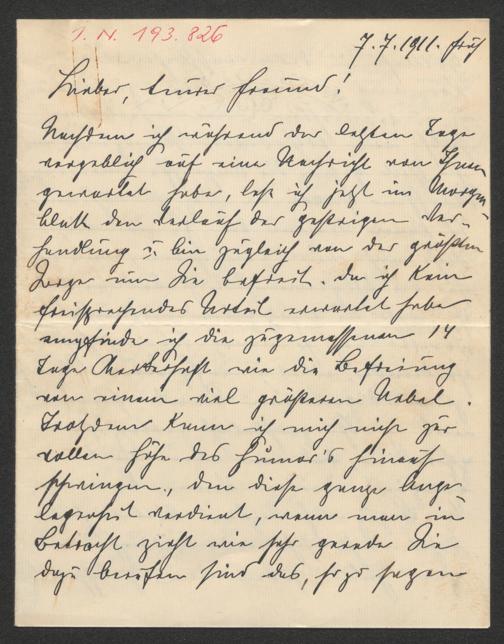 I. N. 193.826
7.7.1911. früh
Lieber, teurer Freund!
Nachdem ich während der letzten Tage
vergeblich auf eine Nachricht von Ihnen
gewartet habe, lese ich jetzt im Morgen
blatt den Verlauf der gestrigen Ver-
handlung u. bin zugleich von der größten
Sorge um Sie befreit. Da ich kein
freisprechendes Urteil erwartet habe
empfinde ich die zugemessenen 14
Tage Kerkerhaft wie die Befreiung
von einem viel größeren Uebel.
Trotzdem kann ich mich nicht zur
vollen Höhe des Humor's hinauf
schwingen, den diese ganze Ange
legenheit verdient, wenn man in
Betracht zieht wie sehr gerade Sie
dazu berufen sind das, so zu sagen